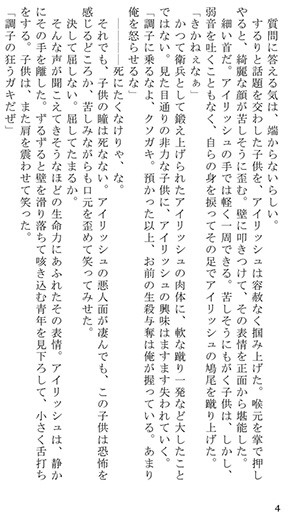 質問に答える気は、端からないらしい。
するりと話題を交わした子供を、アイリッシュは容赦なく掴み上げた。喉元を掌で押し
やると、綺麗な顔が苦しそうに歪む。壁に叩きつけて、その表情を正面から堪能した。
細い首だ。アイリッシュの手では軽く一周できる。苦しそうにもがく子供は、しかし、
弱音を吐くこともなく、自らの身を捩ってその足でアイリッシュの鳩尾を蹴り上げた。
「きかねぇなぁ」
かつて衛兵として鍛え上げられたアイリッシュの肉体に、軟な蹴り一発など大したこと
ではない。見た目通りの非力な子供に、アイリッシュの興味はますます失われていく。
「調子に乗るなよ、クソガキ。預かった以上、お前の生殺与奪は俺が握っている。あまり
俺を怒らせるな」
――――死にたくなけりゃ、な。
それでも、子供の瞳は死なない。アイリッシュの悪人面が凄んでも、この子供は恐怖を
感じるどころか、苦しみながらも口元を歪めて笑ってみせた。
決して屈しない。屈してたまるか。
そんな声が聞こえてきそうなほどの生命力にあふれたその表情。アイリッシュは、静か
にその手を離した。ずるずると壁を滑り落ちて咳き込む青年を見下ろして、小さく舌打ち
をする。子供は、また肩を震わせて笑った。
「調子の狂うガキだぜ」
4